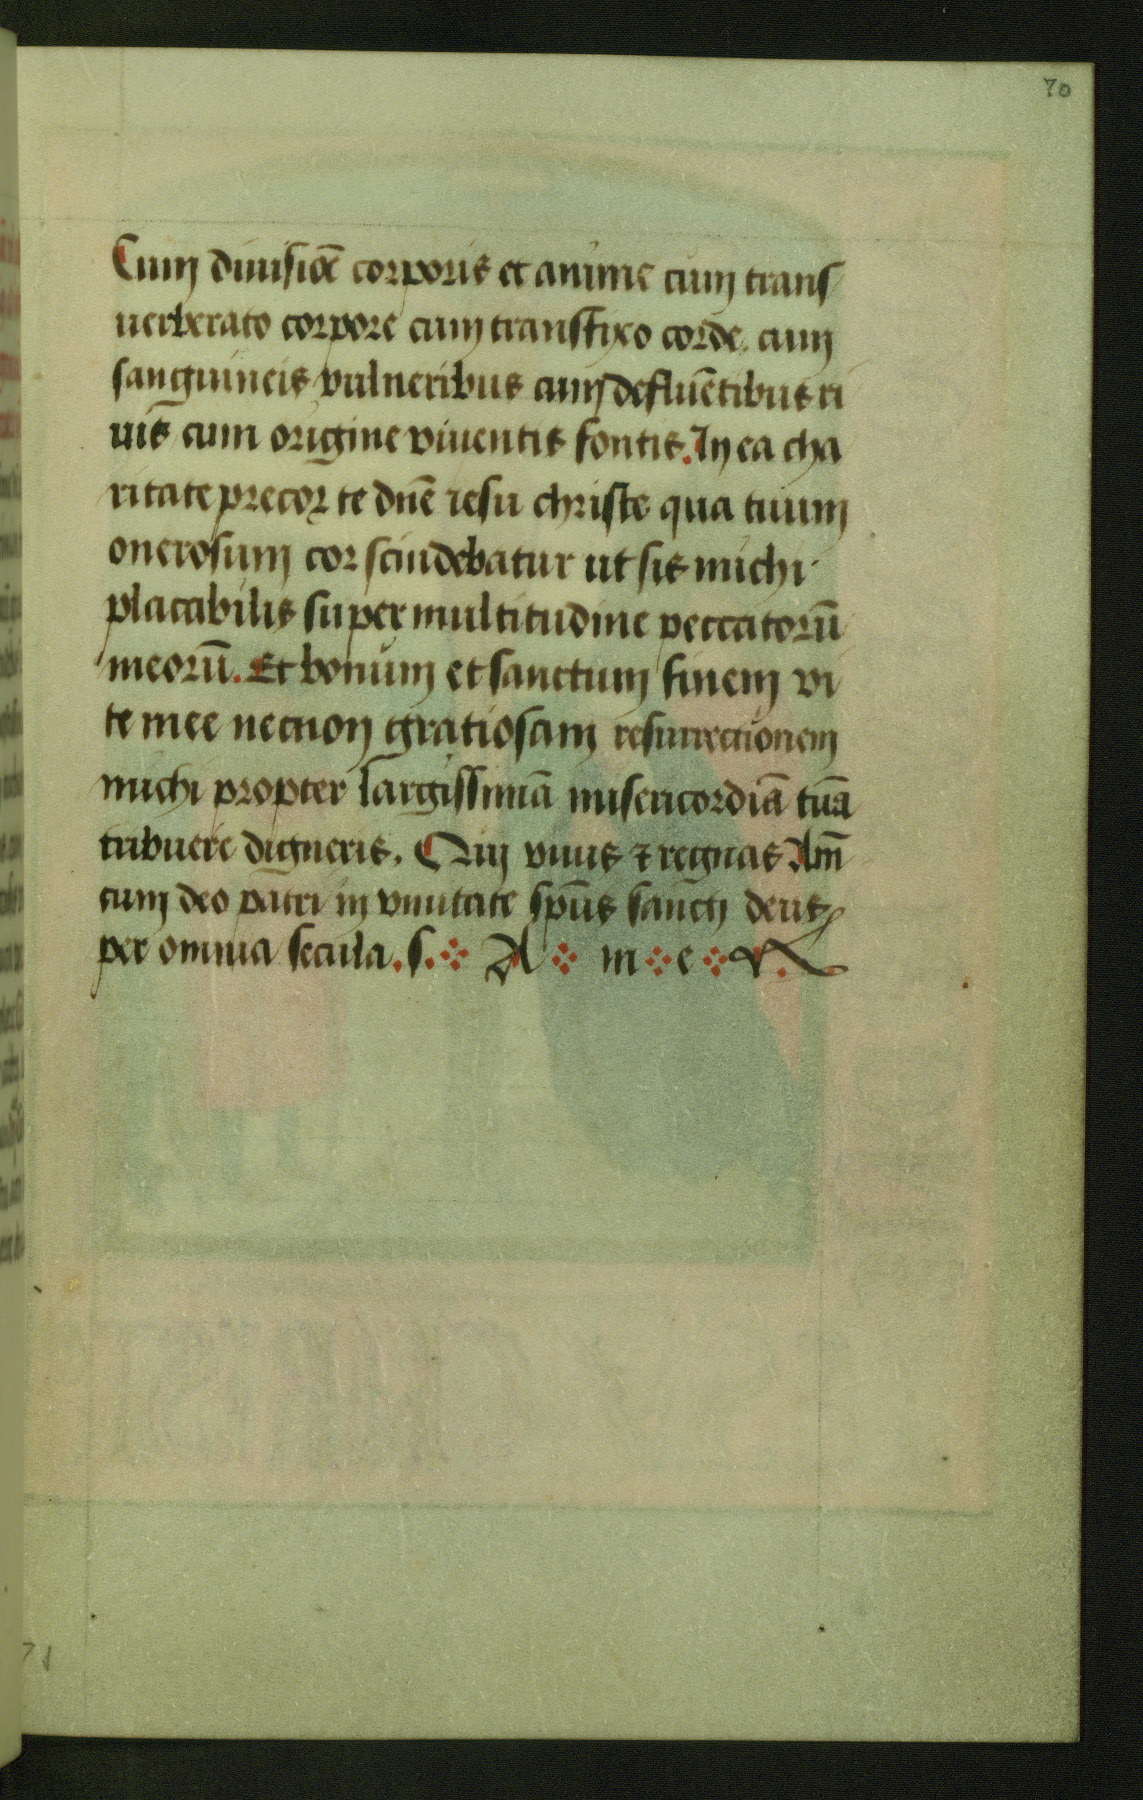 70
Cum diuisiōe corporis et anime cum trans
uerberato corpore cum transfixo corde. cum
sanguineis vulneribus cum defluētibus ri
uis cum origine viuentis fontis. In ea cha
ritate precor te dn̄e iesu christe qua tuum
onerosum cor scindebatur ut sis michi
placabilis super multitudine peccatorū
meorū. Et bonum et sanctum finem vi
te mee necnon gratiosam resurrectionem
michi propter largissimā misericordiā tuā
tribuere digneris. Qui viuis ⁊ regnas Am̄
cum deo patri in vnitate sp̄us sancti deus
per omnia secula. s. A m e n.
71